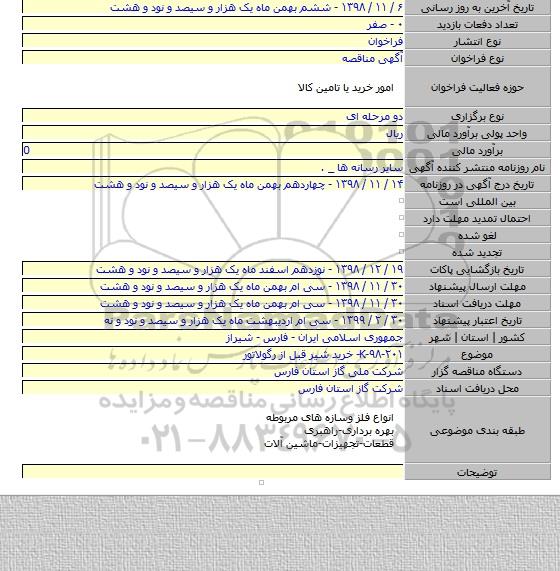 تاریخ آخرین به روز رسانی ۶ / ۱۱ / ۱۳۹۸ - ششم بهمن ماه یک هزار و سیصد و نود و هشت
تعداد دفعات بازدید ۰ - صفر
نوع انتشار فراخوان
نوع فراخوان آگهی مناقصه
حوزه فعالیت فراخوان امور خرید یا تامین کالا
نوع برگزاری دو مرحله ای
واحد پولی برآورد مالی ریال
برآورد مالی 0
نام روزنامه منتشر کننده آگهی سایر رسانه ها _ .
تاریخ درج آگهی در روزنامه ۱۴ / ۱۱ / ۱۳۹۸ - چهاردهم بهمن ماه یک هزار و سیصد و نود و هشت
بین المللی است
احتمال تمدید مهلت دارد
لغو شده
تجدید شده
تاریخ بازگشایی پاکات ۱۹ / ۱۲ / ۱۳۹۸ - نوزدهم اسفند ماه یک هزار و سیصد و نود و هشت
مهلت ارسال پیشنهاد ۳۰ / ۱۱ / ۱۳۹۸ - سی ام بهمن ماه یک هزار و سیصد و نود و هشت
مهلت دریافت اسناد ۳۰ / ۱۱ / ۱۳۹۸ - سی ام بهمن ماه یک هزار و سیصد و نود و هشت
تاریخ اعتبار پیشنهاد ۳۰ / ۲ / ۱۳۹۹ - سی ام اردیبهشت ماه یک هزار و سیصد و نود و نه
کشور | استان | شهر جمهوری اسلامی ایران - فارس - شیراز
موضوع K-۹۸-۲۰۱- خرید شیر قبل از رگولاتور
دستگاه مناقصه گزار شرکت ملی گاز استان فارس
محل دریافت اسناد شرکت گاز استان فارس
پایگاه اطلاع رسانی مناقصه و مزایده
طبقه بندی موضوعی انواع فلز وسازه های مربوطه
بهره برداری-راهبری
قطعات-تجهیزات-ماشین آلات
توضیحات